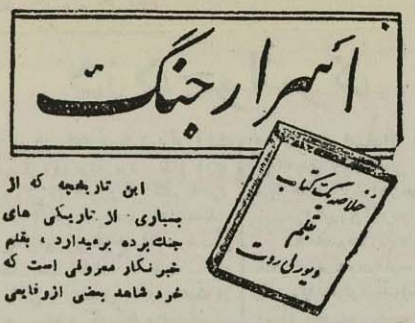 اسرار جنگ
خلاصه یک کتاب
بقلم
ویورلی روت
این تاریخچه که از
بسیاری از تاریکی های
جنك پرده برمیدارد ، بقلم
خبرنگار معروفی است که
خود شاهد بعضی ازوقایعی